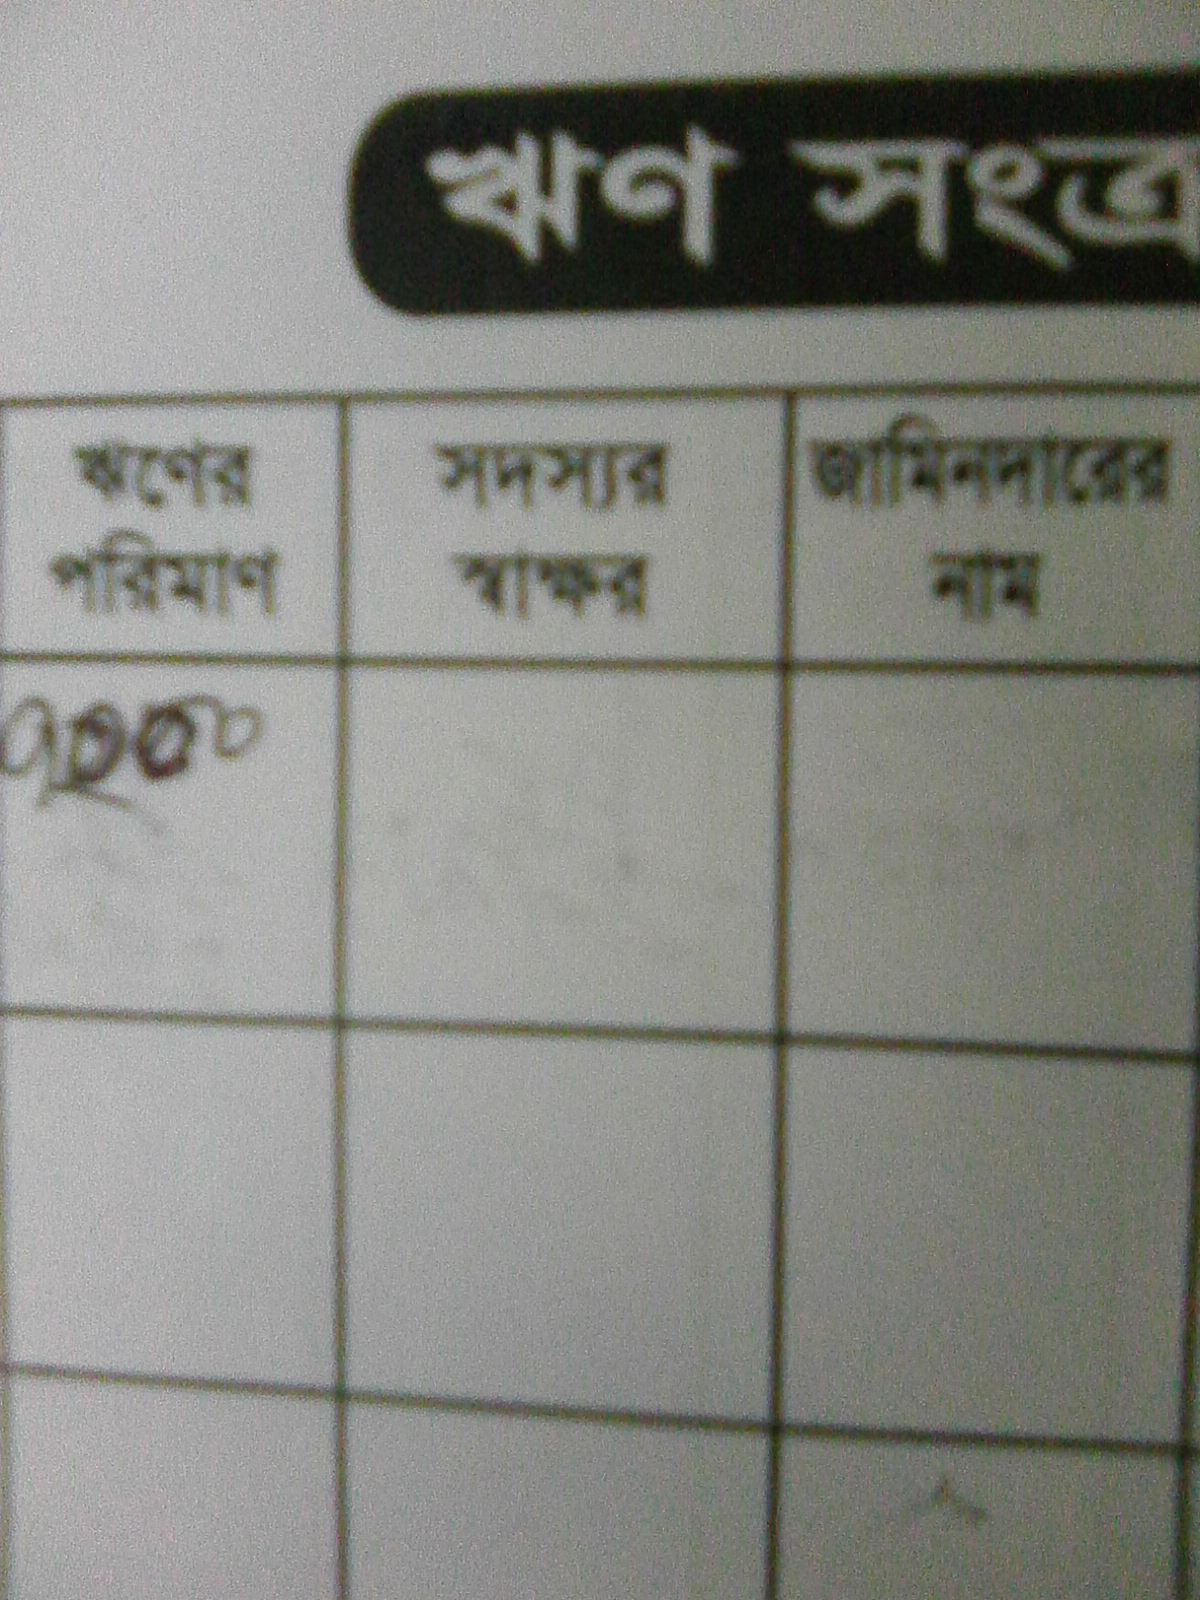 ঋণ সংত্র
ঋণের
পরিমাণ
সদস্যর
স্বাক্ষর
জামিনদারের
নাম